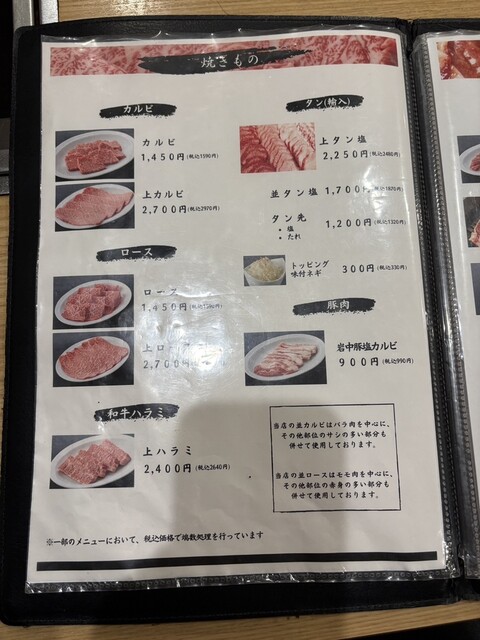 焼きもの
カルビ
カルビ
1,450円(税込1590円)
上カルビ
2,700円(税込2970円)
ロース
ロース
1,450円
上ロース
2,700円
和牛ハラミ
上ハラミ
2,400円(税込2640円)
タン(輸入)
上タン塩
2,250円(税込2480円)
並タン塩 1,700円(税込1870円)
タン先
・塩
・たれ
1,200円(税込1320円)
トッピング
味付ネギ
300円(税込330円)
豚肉
岩中豚塩カルビ
900円(税込990円)
当店の並カルビはバラ肉を中心に、
その他部位のサシの多い部分も
併せて使用しております。
当店の並ロースはモモ肉を中心に、
その他部位の赤身の多い部分も
併せて使用しております。
※一部のメニューにおいて、税込価格で端数処理を行っています